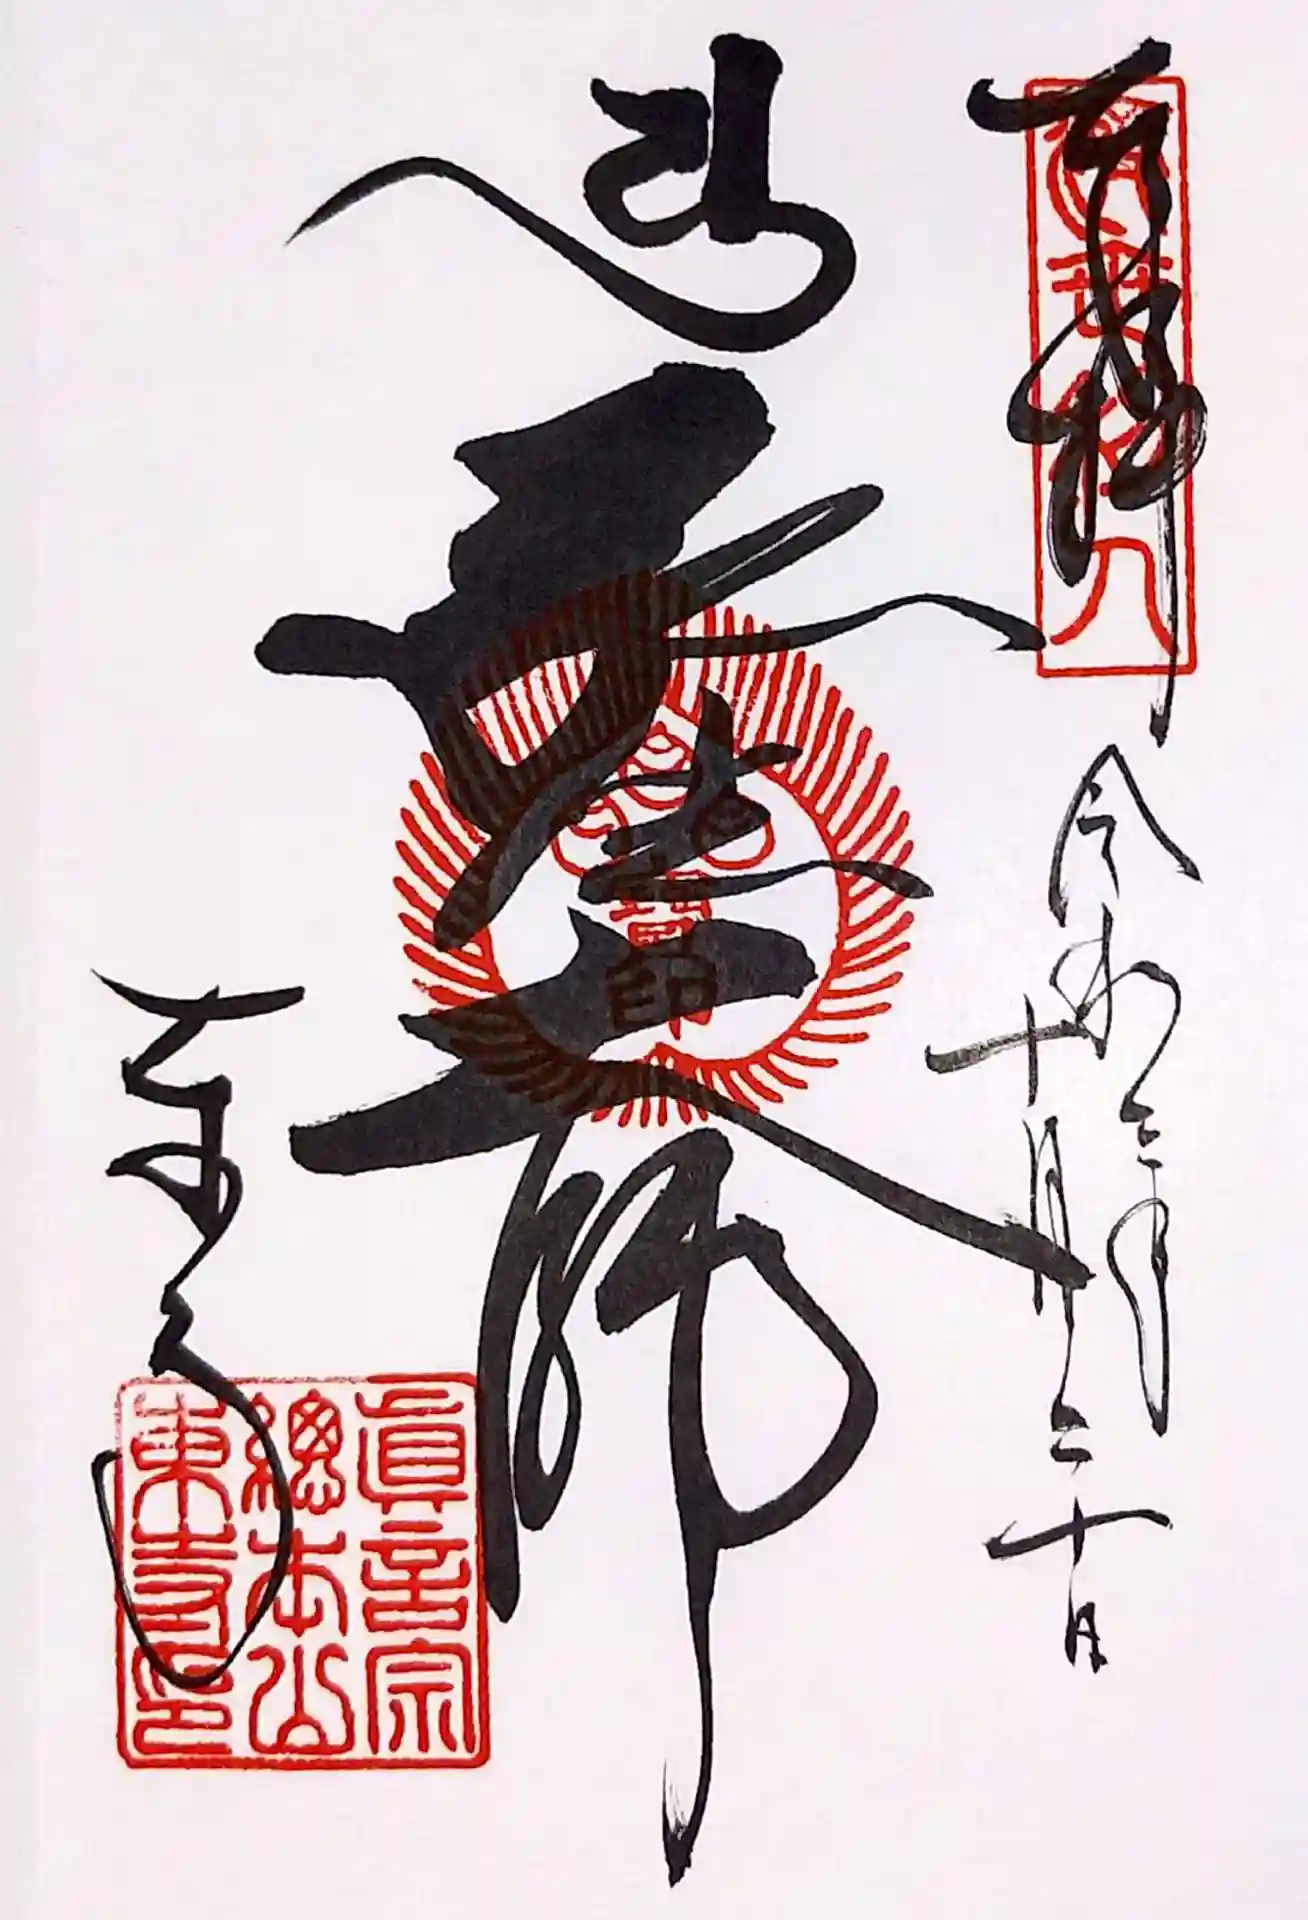 奉拝
令和三年
十月二十日
弘法大師
東寺
眞言宗
總本山
東寺印